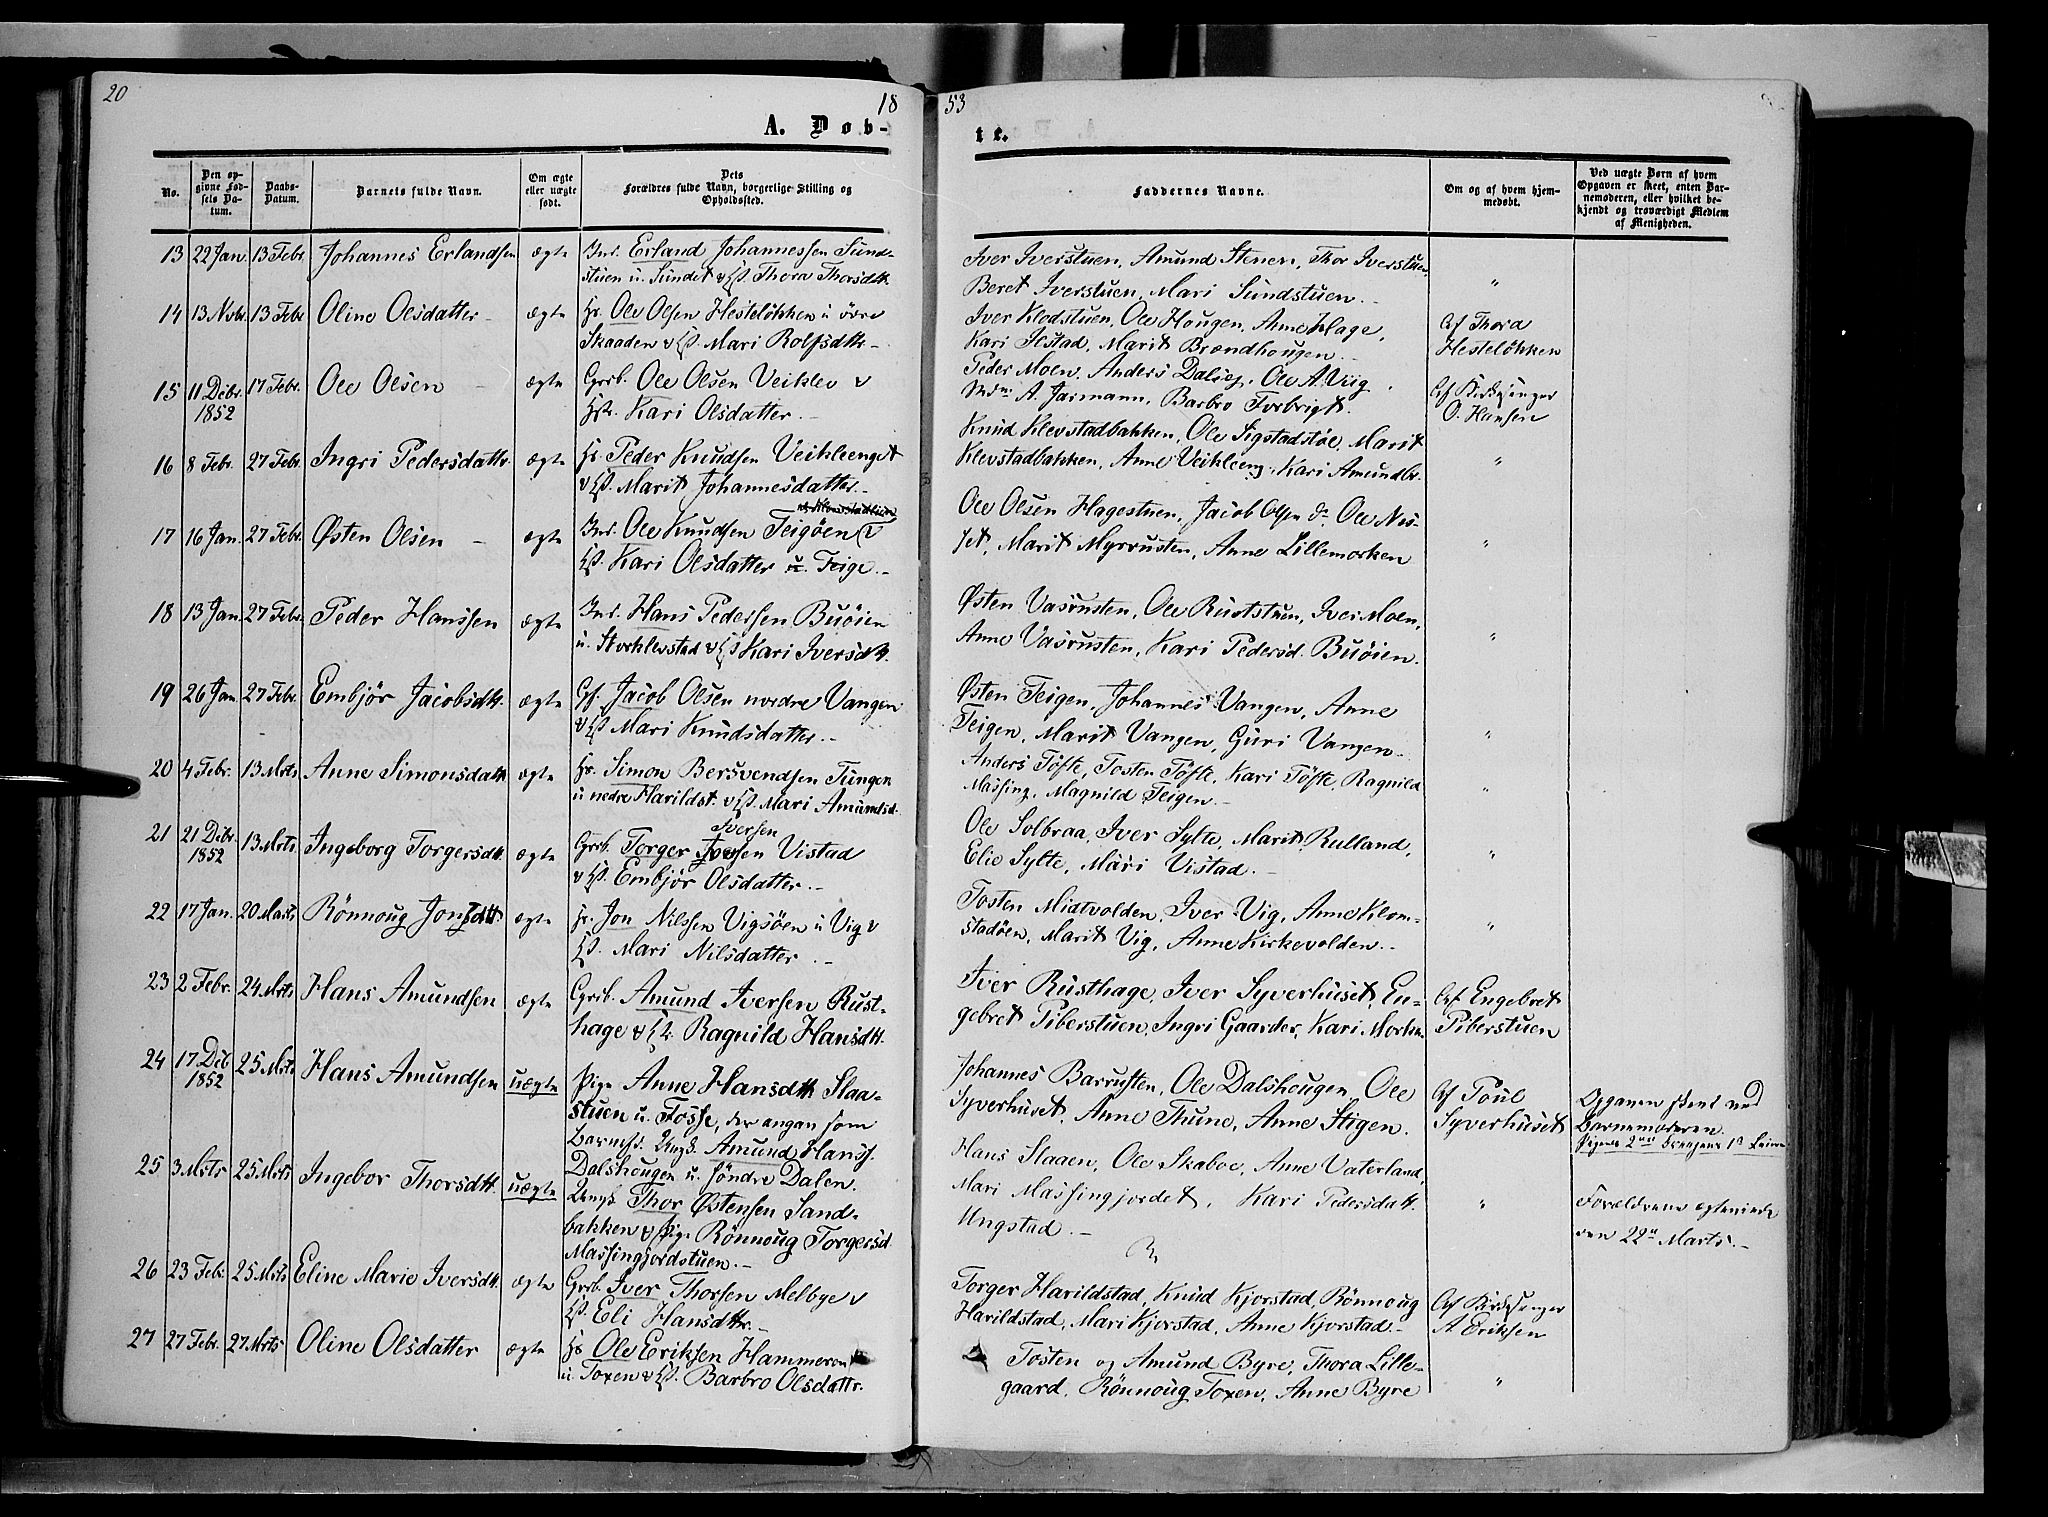 20
18
53
A. Døb-
te.
No.
Den op-
givne Fød-
sels Da-
tum.
Daabs-
Datum.
Barnets fulde Navn.
Om ægte
eller uægte
født.
Dets
Forældres fulde Navn, borgerlige Stilling og
Opholdssted.
Faddernes Navne.
Om og af hvem hjem-
medøbt.
Ved uægte Børn af hvem
Opgaven er skeet, enten Bar-
nemoderen, eller hvilket be-
kjendt og troværdigt Medlem
af Menigheden.
13 22 Jan. 13 Febr. Johannes Erlandsen ægte Inds. Erland Johannessen Sund-
stuen u. Sundet & H. Thora Thorsdtr.
Iver Iverstuen, Amund Stenen, Thor Iverstuen,
Beret Iverstuen, Mari Sundstuen. "
14 13 Nvbr. 13 Febr Oline Olsdatter ægte Hr. Ole Olsen Hesteløkken u övre
Skaaden & H. Mari Rolfsdtr.
Iver Klodstuen, Ole Haugen, Anne Hage,
Kari Ilstad, Marit Brændhougen.
Af Thora
Hesteløkken
15 11 Debr. 1852 17 Febr. Ole Olsen ægte Grsb. Ole Olsen Veiklev &
Hstr. Kari Olsdatter.
Peder Moen, Anders Dalsej, Ole A. Viig,
Mdm A. Jarmann, Barbro Forbrigt.
Af Kirkesanger
O. Hansen
16 8 Febr. 27 Febr. Ingri Pedersdattr. ægte Hr. Peder Knudsen Veikleenget
& H. Marit Johannesdatter.
Knud Klevstadbakken, Ole Sigstadstøe, Marit
Klevstadbakken, Anne Veikleeng, Kari Amundbr. "
17 16 Jan. 27 Febr. Østen Olsen ægte Inds. Ole Knudsen Teigöen &
H. Kari Olsdatter u. Teige.
Ole Olsen Hagestuen, Jacob Olsen do. Ole Nis-
set, Marit Myrrusten, Anne Lillemorken "
18 13 Jan. 27 Febr. Peder Hanssen ægte Inds. Hans Pedersen Buöien
u. Storklevstad & H. Kari Iversdtr.
Østen Vasrusten, Ole Ruststuen, Iver Moen,
Anne Vasrusten, Kari Pedersd. Buöien. "
19 26 Jan 27 Febr. Embjör Jacobsdtr. ægte Gf. Jacob Olsen nordre Vangen
& H. Mari Knudsdatter.
Østen Teigen, Johannes Vangen, Anne
Teigen, Marit Vangen, Guri Vangen. "
20 4 Febr. 13 Mrts Anne Simonsdatt. ægte Hr. Simon Bersvendsen Tungen
u nedre Harildst. & H. Mari Amundsd.
Anders Töfte, Tosten Töfte, Kari Töfte, Ragnild
Massing, Magnild Teigen. "
21 21 Debr. 1852 13 Mrts. Ingeborg Torgersdtr. ægte Grsb. Torger Iversen Vistad
Iversen
& H. Embjör Olsdatter.
Ole Solbraa, Iver Sylte, Marit Rulland,
Elie Sylte, Mari Vistad. "
22 17 Jan. 20 Marts Rönnoug Jonsdtr ægte Hr. Jon Nilssen Vigsöen u Vig &
H. Mari Nilsdatter.
Tosten Midtvolden, Iver Vig, Anne Klom-
stadöen, Marit Vig, Anne Kirkevolden. "
23 2 Febr. 24 Mrts Hans Amundsen ægte Grsb. Amund Iversen Rust-
hage & H. Ragnild Hansdtr.
Iver Rusthage, Iver Syverhuset, En-
gebret Piberstuen, Ingri Gaarder, Kari Morken
Af Engebret
Piberstuen
24 17 Deb 1852 25 Mrts Hans Amundsen uægte Pige Anne Hansdtr. Slaa-
stuen u. Fosse, der angav som
Barnfd. Ungk. Amund Hanss.
Dalshougen u. söndre Dalen.
Johannes Barrusten, Ole Dalshougen, Ole
Syverhuset, Anne Thune, Anne Stigen.
Af Poul
Syverhuset
Opgaven skeet ved
Barnemoderen.
Pigens 2den Drengens 1ste
25 3 Mrts 25 Mrts Ingebor Thorsdtr. uægte Ungk. Thor Østensen Sand-
bakken & Pige Rönnoug Torgersd.
Massingjordstuen.
Hans Slaaen, Ole Skaboe, Anne Vaterland,
Mari Massingjordet, Kari Pedersdatt.
Ungstad. "
Forældrene ægteviede
den 22de Marts.
26 23 Febr. 25 Mrts Eline Marie Iversdtr. ægte Grsb. Iver Thorsen Melbye &
H. Eli Hansdtr.
Torger Harildstad, Knud Kjorstad, Rönnoug
Harildstad, Mari Kjorstad, Anne Kjorstad.
Af Kirkesanger
A. Eriksen
27 27 Febr. 27 Mrts Oline Olsdatter ægte Hr. Ole Eriksen Hammeren
u. Toxen & H. Barbro Olsdattr.
Tosten og Amund Byre, Thora Lille-
gaard, Rönnoug Toxen, Anne Byre "